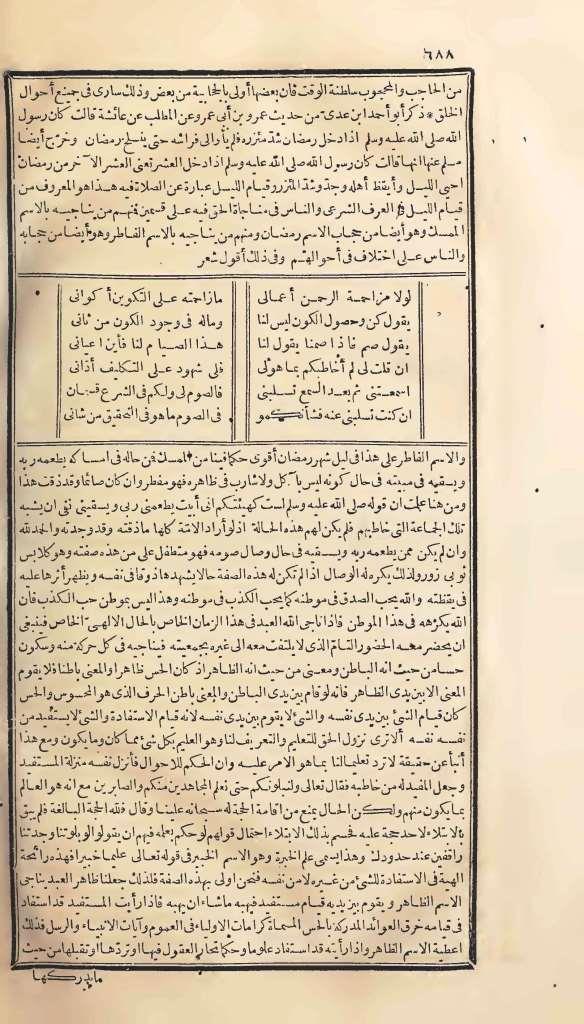 ٦٨٨
من الحاجب والمحبوب سلطنة الوقت فان بعضها أولى بالحجابية من بعض وذلك سارى فى جميع أحوال
الخلق * ذكر أبو أحمد ابن عدى من حديث عمرو بن أبى عمرو عن المطلب عن عائشة قالت كان رسول
الله صلى الله عليه وسلم اذا دخل رمضان شدّ مئزره فلم يأو الى فراشه حتى ينسلخ رمضان وخرّج أيضا
مسلم عنها انها قالت كان رسول الله صلى الله عليه وسلم اذا دخل العشر تعنى العشر الآخر من رمضان
احيى الليل وأيقظ أهله وجدّ وشدّ المئزر وقيام الليل عبارة عن الصلاة فيه هذا هو المعروف من
قيام الليل فى العرف الشرعى والناس فى مناجاة الحق فيه على قسمين فمنهم من يناجيه بالاسم
الممسك وهو أيضا من حجاب الاسم رمضان ومنهم من يناجيه بالاسم الفاطر وهو أيضا من حجابه
والناس على اختلاف فى أحوالهم وفى ذلك أقول شعر
لولا مزاحمة الرحمن أعمالى مازاحمته على التكوين أكوانى
يقول كن وحصول الكون ليس لنا وماله فى وجود الكون من ثانى
يقول صم فاذا صمنا يقول لنا هذا الصيام لنا فأين اعيانى
ان قلت لى لم أخاطبكم بما هو لى فلى شهود على التكليف أذانى
اسمعتنى ثم بعد السمع تسلبنى فالصوم لى ولكم فى الشرع قسمان
ان كنت تسلبنى عنه فشأنكمو فى الصوم ما هو فى التحقيق من شانى
والاسم الفاطر على هذا فى ليل شهر رمضان أقوى حكما فينا من الممسك فمن حاله فى امساكه يطعمه ربه
ويسقيه فى مبيته فى حال كونه ليس بآكل ولا شارب فى ظاهره فهو مفطر وان كان صائما وقد ذقت هذا
ومن هنا علمت ان قوله صلى الله عليه وسلم لست كهيئتكم انى أبيت يطعمنى ربى ويسقينى نفى ان يشبه
تلك الجماعة التى خاطبهم فلم يكن لهم هذه الحالة اذ لو أراد الامّة كلها ماذقته وقد وجدته والحمد لله
وان لم يكن ممن يطعمه ربه ويسقيه فى حال وصال صومه فهو متطفل على من هذه صفته وهو كلابس
ثوبى زور ولذلك يكره له الوصال اذا لم تكن له هذه الصفة حالا يشهدها ذوقا فى نفسه ويظهر أثرها عليه
فى يقظته والله يحب الصدق فى موطنه كما يحب الكذب فى موطنه وهذا ليس بموطن حب الكذب فان
الله يكرهه فى هذا الموطن فاذا ناجى الله العبد فى هذا الزمان الخاص بالحال الالهىّ الخاص فينبغى
ان يحضر معه الحضور التامّ الذى لا يلتفت معه الى غيره بجمعيته فيناجيه فى كل حركة منه وسكون
حسا من حيث انه الباطن ومعنى من حيث انه الظاهر اذ كان الحس ظاهرا والمعنى باطنا فلا يقوم
المعنى الا بين يدى الظاهر فانه لو قام بين يدى الباطن والمعنى باطن الحرف الذى هو المحسوس والحس
كان قيام الشئ بين يدى نفسه والشئ لا يقوم بين يدى نفسه لانه قيام الاستفادة والشئ لا يستفيد من
نفسه نفسه ألا ترى نزول الحق للتعليم والتعريف لنا وهو العليم بكل شئ مما كان وما يكون ومع هذا
أنبأ عن حقيقة لا ترد تعليما لنا بما هو الامر عليه وان الحكم للاحوال فأنزل نفسه منزلة المستفيد
وجعل المفيد له من خاطبه فقال تعالى ولنبلونكم حتى نعلم المجاهدين منكم والصابرين مع انه هو العالم
بما يكون منهم ولكن الحال يمنع من اقامة الحجة له سبحانه علينا وقال فلله الحجة البالغة فلم يبق
بالابتلاء لاحد حجة عليه فحسم بذلك الابتلاء احتمال قولهم لو حكم بعلمه فيهم ان يقولوا لو بلوتنا وجدتنا
واقفين عند حدودك وهذا يسمى علم الخبرة وهو الاسم الخبير فى قوله تعالى عليما خبيرا فهذه رائحة
الهية فى الاستفادة للشئ من غيره لا من نفسه فنحن اولى بهذه الصفة فلذلك جعلنا ظاهر العبد يناجى
الاسم الظاهر ويقوم بين يديه قيام مستفيد فيهبه ماشاء ان يهبه فاذا رأيت المستفيد قد استفاد
فى قيامه خرق العوائد المدركة بالحس المسماة كرامات الاولياء فى العموم وآيات الانبياء والرسل فذلك
اعطية الاسم الظاهر واذا رأيته قد استفاد علوما وحكما تحار العقول فيها او تردّها او تقبلها من حيث
ما يدركها